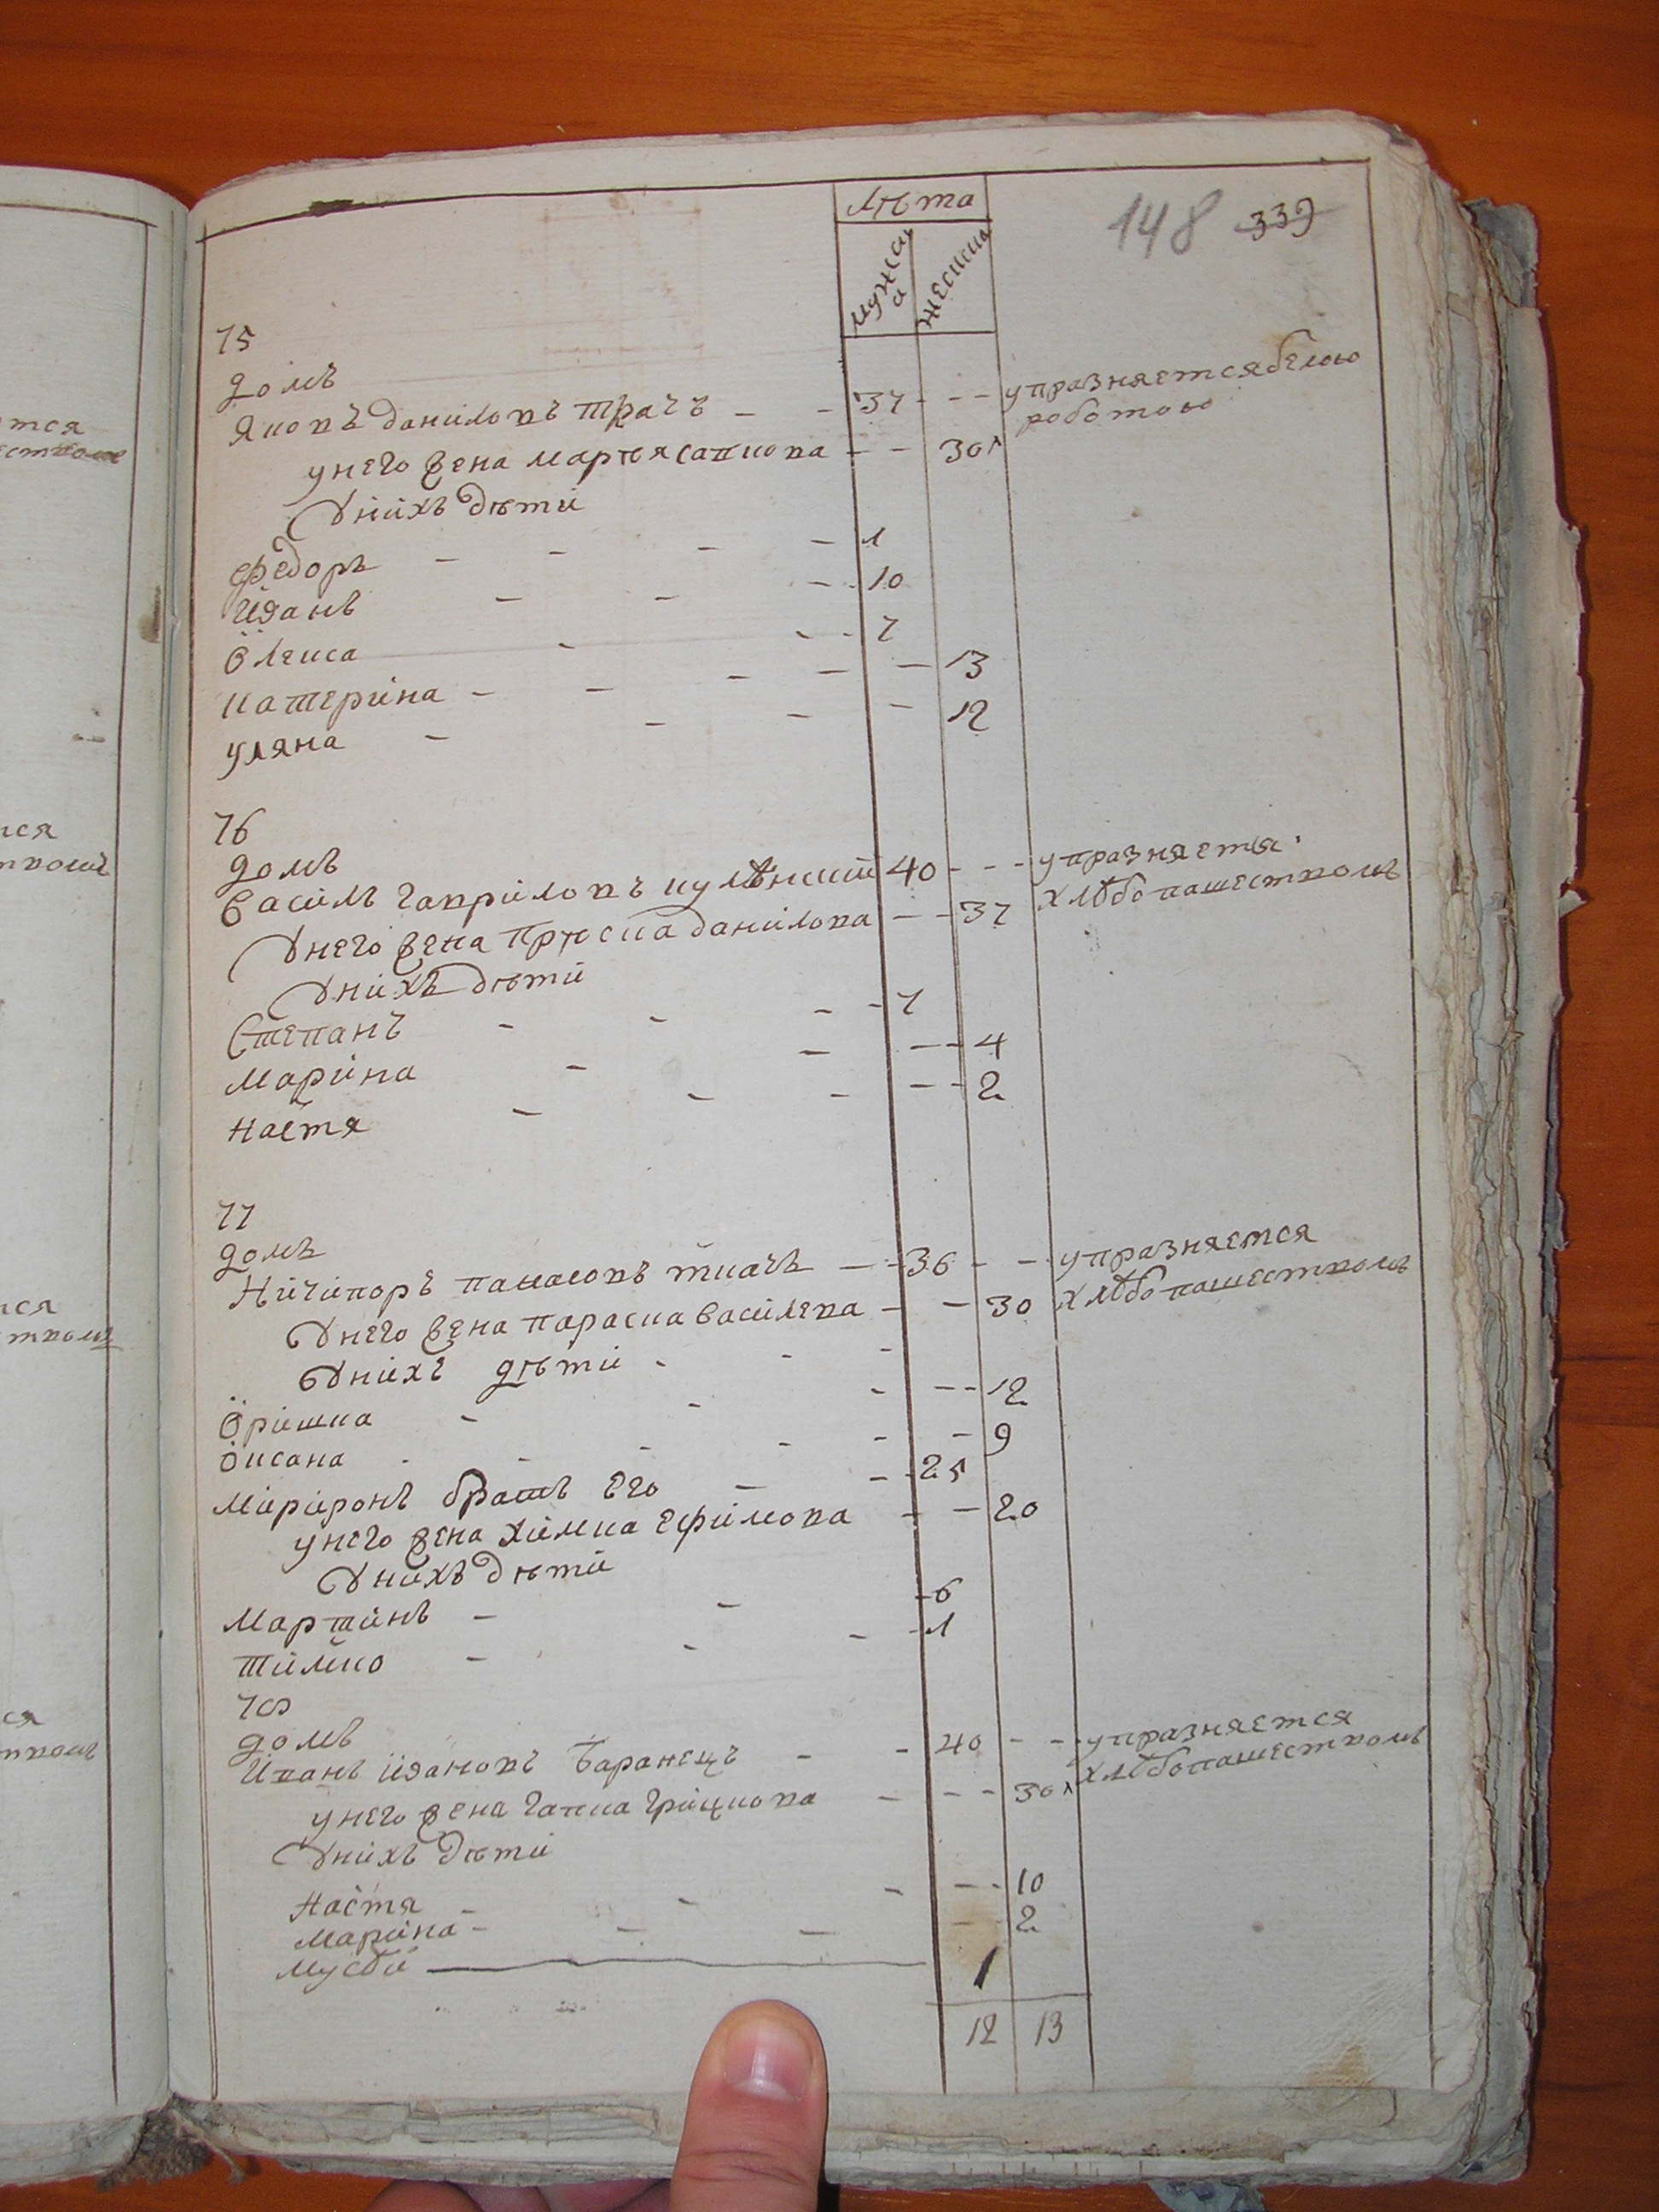 лѣта
148 339
мужска женска
75
домъ
Яковъ даниловъ трачъ — — 37 - - - упразняется бѣлою
роботою
у него жена марѳя сапкова — — 30
У нихъ дѣти
Федоръ — — — — 1
Иванъ — — — 10
Олекса — — - 7
катерина — — — — — 13
уляна — — — — 12
76
домъ
Василь гавриловъ кулѣнский 40 - - - упразняеться
хлѣбопашествомъ
У него женаПриска данилова — — 37
У нихъ дѣти
Степанъ — — — - 7
Марина — — — - 4
Настя — — — — - 2
77
домъ
Ничипоръ панасовъ ткачъ — - 36 - — - упразняется
хлѣбопашествомъ
У него жена параска василева — — 30
У нихъ дѣти - - -
Оришка - - - — - 12
Оксана - - - - - — 9
Миронъ братъ его — — 25
у него жена химка ефимова — — 20
У нихъ дѣти
Мартинъ — — - 6
Тимко — - — - 1
78
домъ
Иванъ ивановъ баранецъ — - 40 - — - упразняется
хлѣбопашествомъ
у него жена гапка грицкова — — - - 30
У нихъ дѣти
Настя — — — — - 10
Марина — — — — - 2
1
12 13